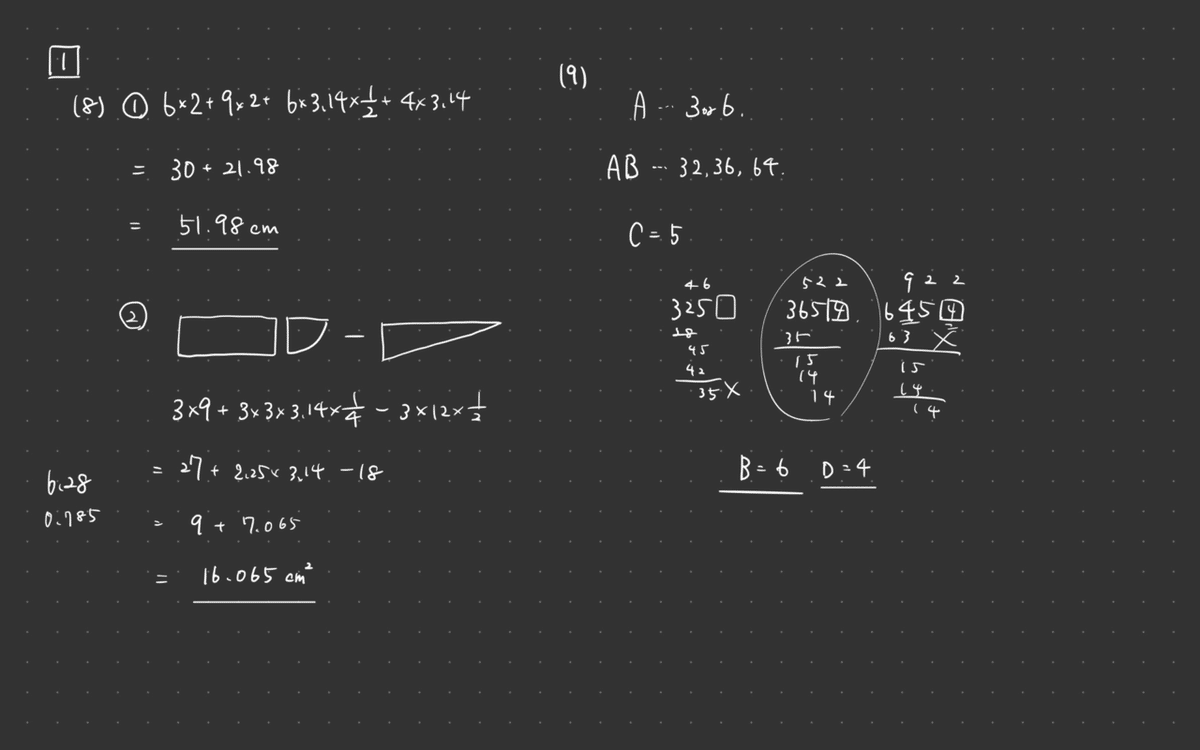 1
(8) ① 6×2+9×2+ 6×3.14×1/2+ 4×3.14
= 30 + 21.98
= 51.98 cm
②
3×9 + 3×3×3.14×1/4 - 3×12×1/2
= 27 + 2.25× 3.14 -18
= 9 + 7.065
= 16.065 cm²
6.28
0.785
(9)
A … 3or6.
AB … 32,36, 64.
C = 5
46
325□
28
45
42
35 ×
522
3654.
35
15
14
14
922
6454
63 ×
15
14
14
B = 6 D = 4